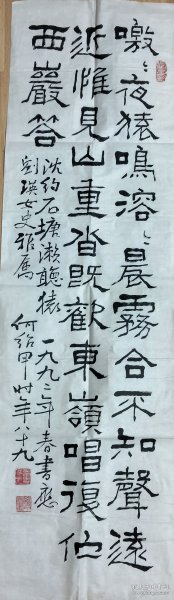 噭〻夜猿鳴溶〻晨霧合不知聲遠
近惟見山重沓既歡東嶺唱復佇
西巖答
沈約石塘瀨聽猿 一九九二年春書應
劉瑛女史雅屬 何紹甲時年八十九